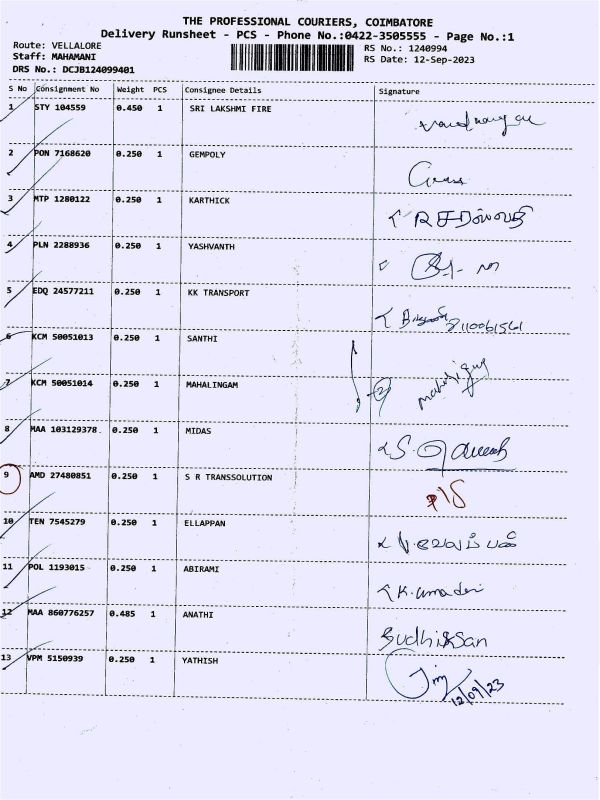 THE PROFESSIONAL COURIERS, COIMBATORE
Delivery Runsheet - PCS - Phone No.:0422-3505555 - Page No.:1
Route: VELLALORE
RS No.: 1240994
Staff: MAHAMANI
RS Date: 12-Sep-2023
DRS No.: DCJB124099401
S No Consignment No Weight PCS Consignee Details Signature
1 STY 104559 0.450 1 SRI LAKSHMI FIRE
2 PON 7168620 0.250 1 GEMPOLY
3 MTP 1280122 0.250 1 KARTHICK
4 PLN 2288936 0.250 1 YASHVANTH
5 EDQ 24577211 0.250 1 KK TRANSPORT
6 KCM 50051013 0.250 1 SANTHI
7 KCM 50051014 0.250 1 MAHALINGAM
8 MAA 103129378 0.250 1 MIDAS
9 AMD 27480851 0.250 1 S R TRANSSOLUTION
10 TEN 7545279 0.250 1 ELLAPPAN
11 POL 1193015 0.250 1 ABIRAMI
12 MAA 860776257 0.485 1 ANATHI
13 VPM 5150939 0.250 1 YATHISH
12/09/23